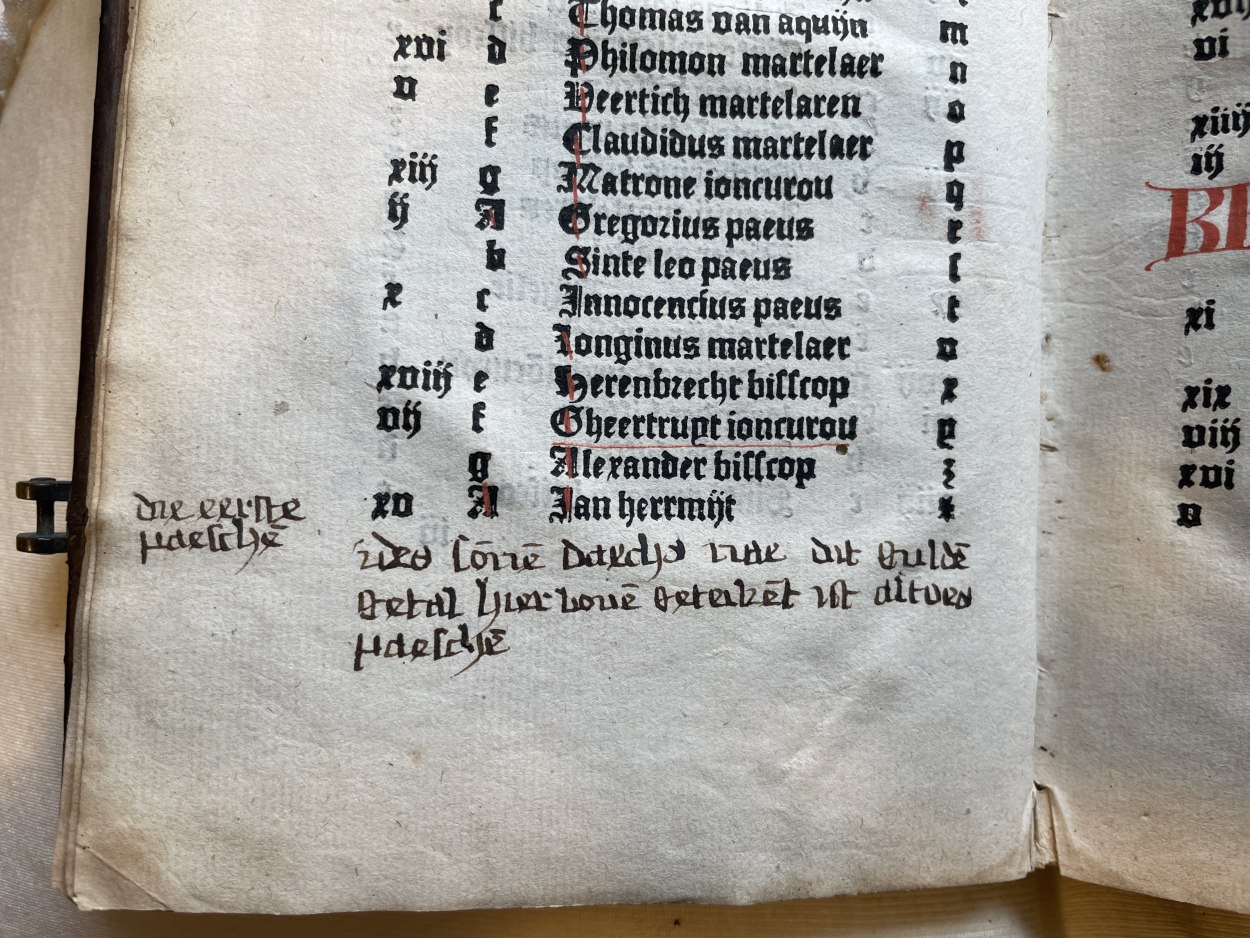 c Thomas van aquijn m
xvi d Philomon martelaer n
v e Veertich martelaren o
f Claudidus martelaer p
xiij g Matrone ioncurou q
ij A Gregorius paeus r
b Sinte leo paeus ſ
x c Innocencius paeus t
d Longinus martelaer v
xviij e Herenbrecht biſſcop x
vij f Gheertruyt ioncurou y
g Alexander biſſcop z
xv A Jan herrmijt
die eerste
paeſchē
ſōnē daechs nae dit guldē
getal hier bouē geteikēt iſt altoes
paeſchē
xvi
xiiij
iij
xi
xix
viij
xvi
v